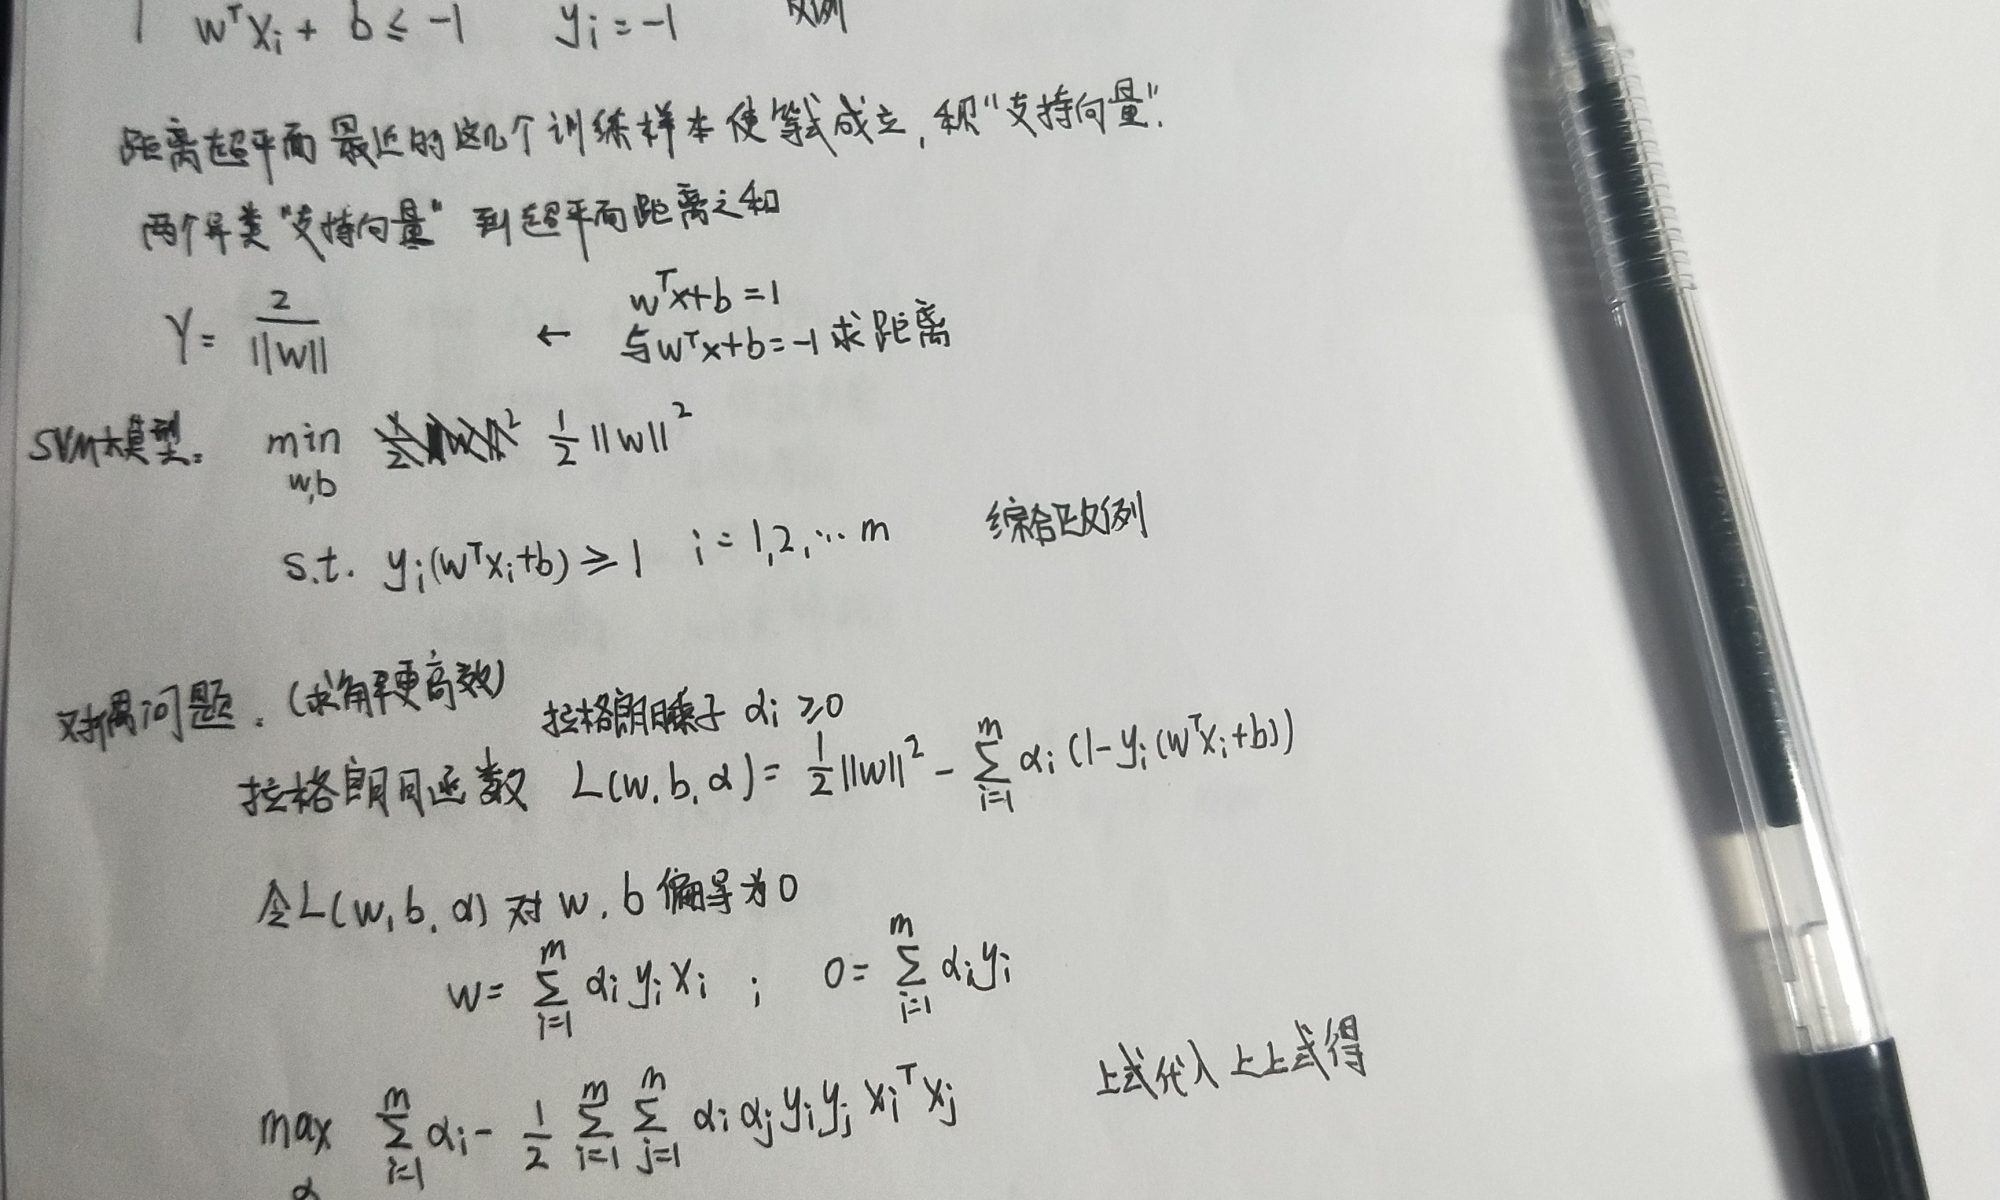 wᵀxᵢ + b ≤ -1 yᵢ = -1 反例
距离超平面最近的这几个训练样本使等式成立,称"支持向量".
两个异类"支持向量"到超平面距离之和
γ = 2/||w|| ← wᵀx+b=1
与wᵀx+b=-1求距离
SVM大模型: min w,b 1/2 ||w||²
s.t. yᵢ(wᵀxᵢ+b) ≥ 1 i = 1,2,… m 综合正反例
对偶问题:(求解更高效)
拉格朗日乘子 αᵢ ≥0
拉格朗日函数 L(w,b,α) = 1/2 ||w||² - Σᵢ₌₁ᵐ αᵢ(1-yᵢ(wᵀxᵢ+b))
令L(w,b,α) 对 w,b 偏导为0
w = Σᵢ₌₁ᵐ αᵢ yᵢ xᵢ ; 0 = Σᵢ₌₁ᵐ αᵢyᵢ
max α Σᵢ₌₁ᵐ αᵢ - 1/2 Σᵢ₌₁ᵐ Σⱼ₌₁ᵐ αᵢ αⱼ yᵢ yⱼ xᵢᵀ xⱼ 上式代入上上式得